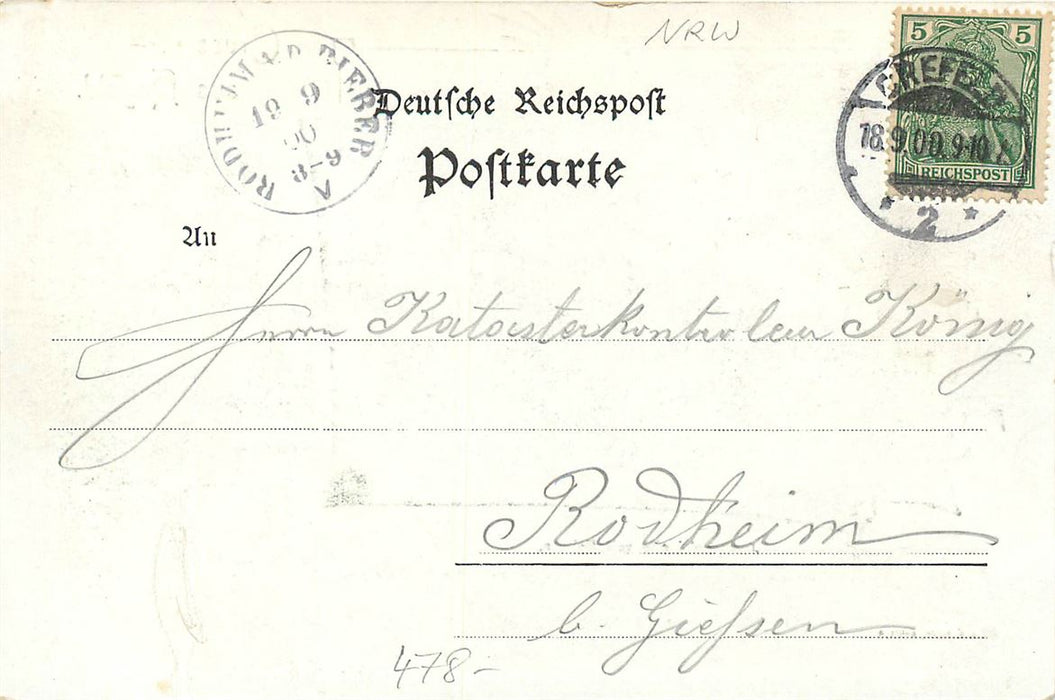 NRW
5 5
REICHSPOST
CREFELD
18.9.00.9-10
* 2 *
RODHEIM A.D. BIEBER
19 9
00
8-9
Deutsche Reichspost
Postkarte
An
Herrn Katasterkontroleur König
Rodheim
b. Giessen
478-